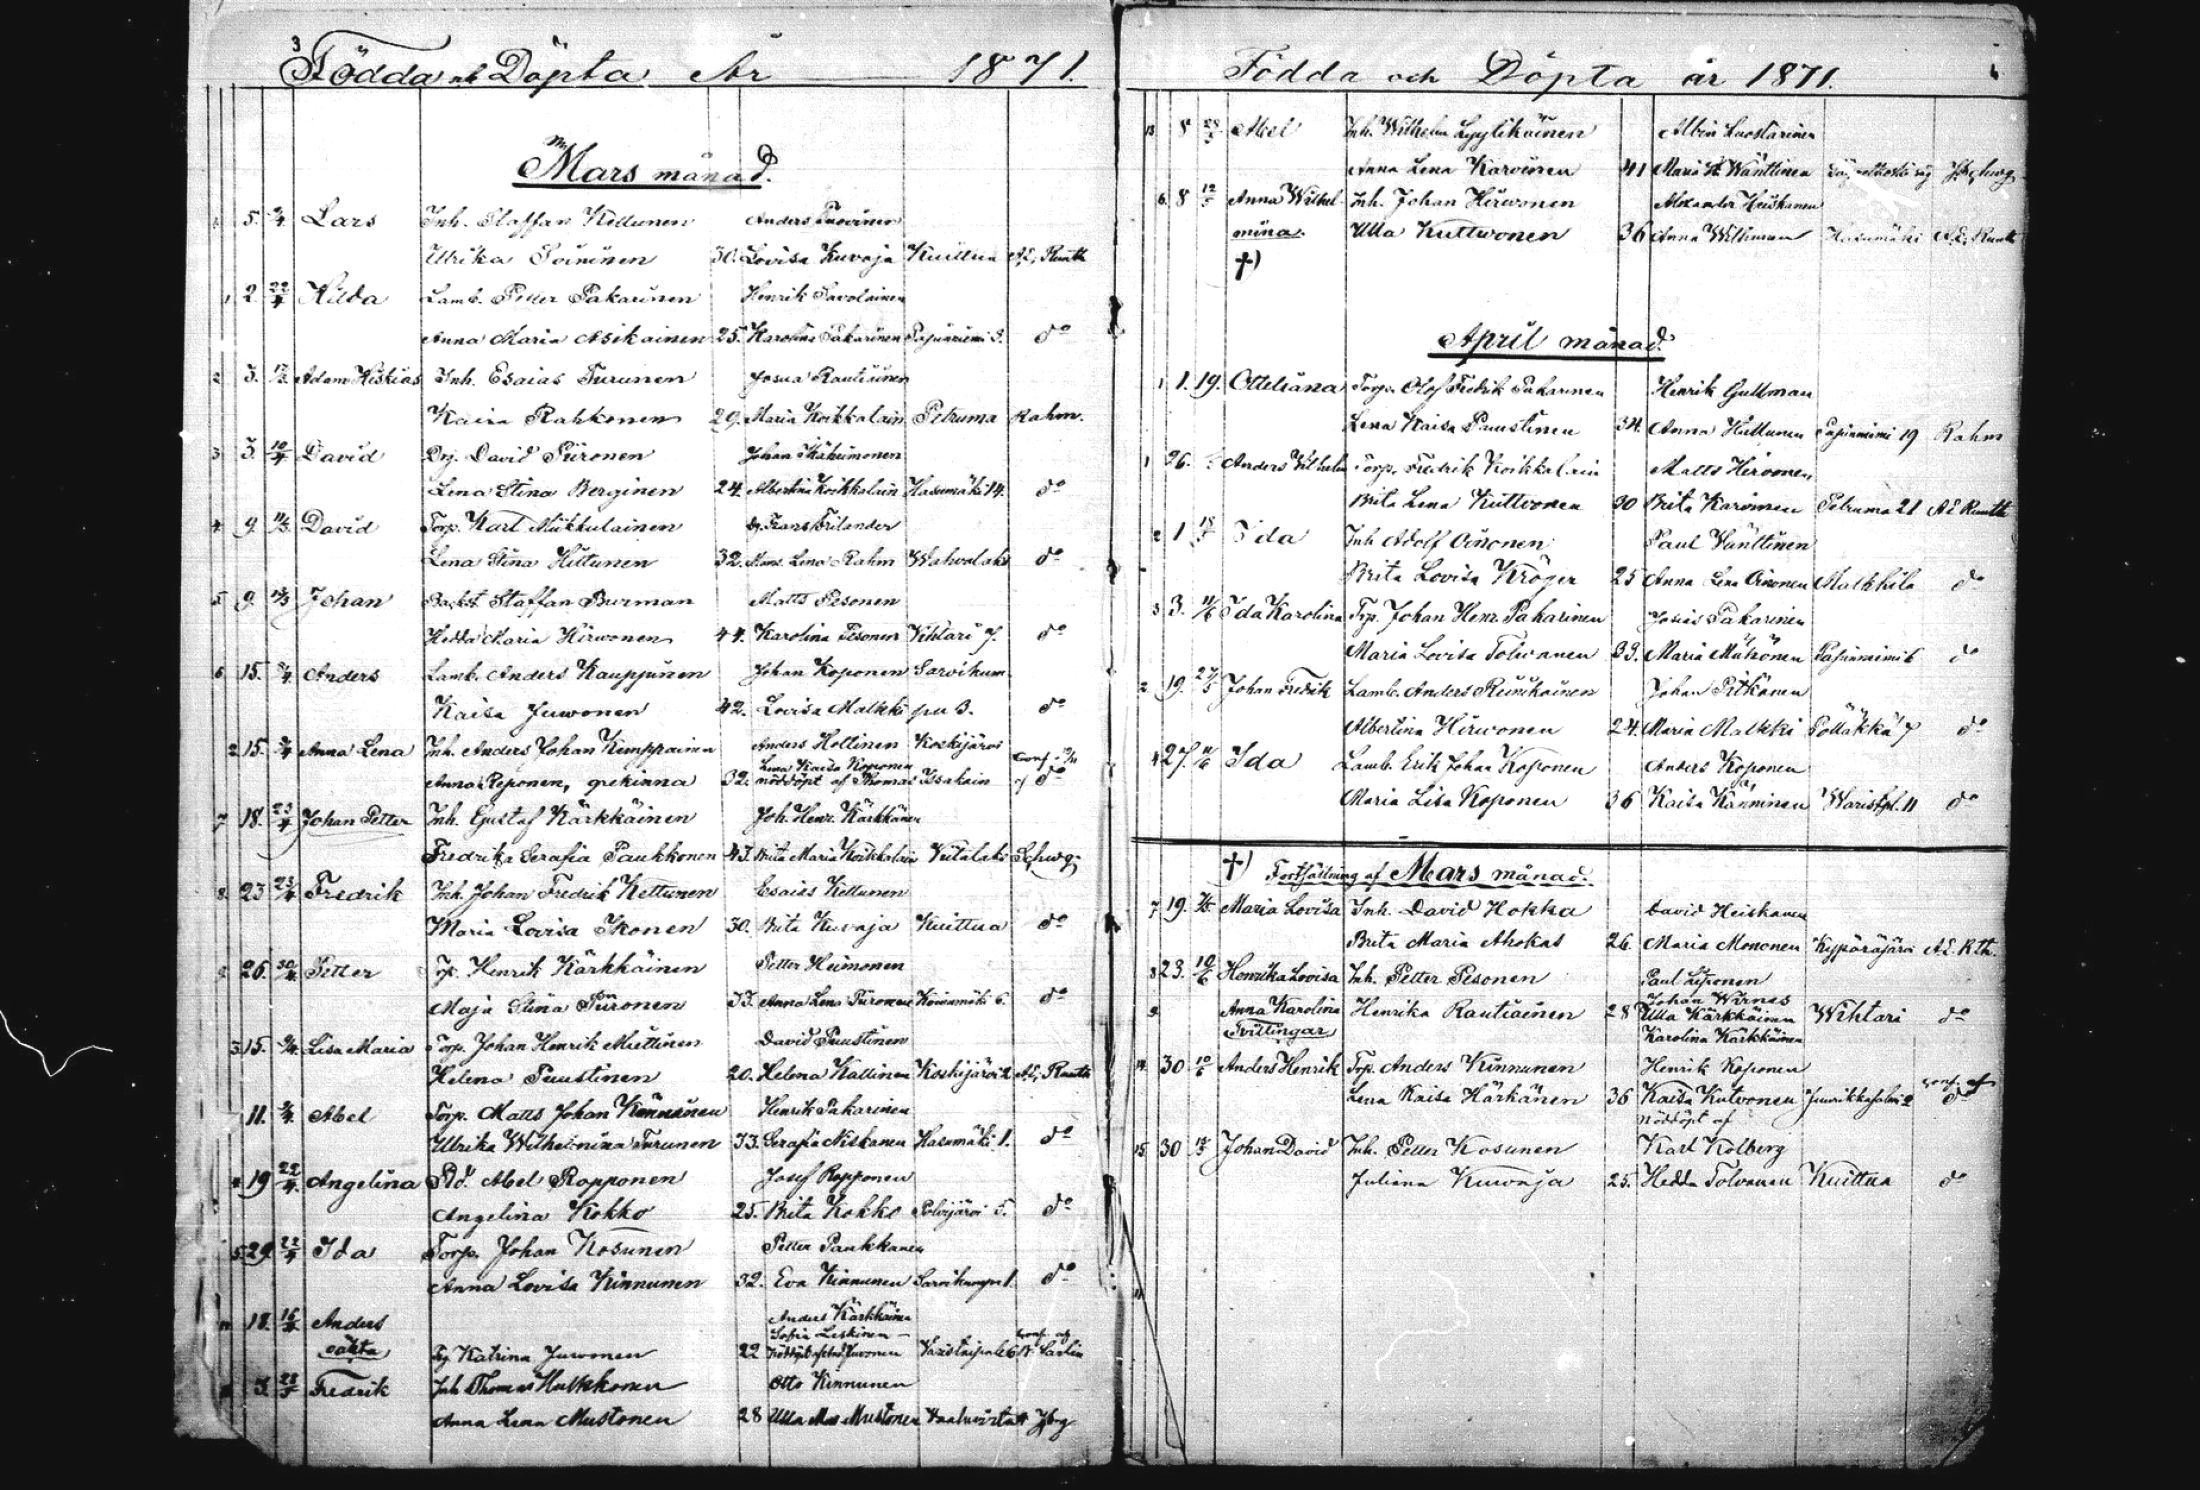 3
Födda och Döpta År 1871.
Mars månad.
5. 9/4 Lars Inh. Staffan Kettunen Anders Tuovinen
Ulrika Soininen 30. Lovisa Kuvaja Kuittua A.E. Ruuth
1 2. 22/4 Hilda Lamb. Petter Pakarinen Henrik Savolainen
Anna Maria Asikainen 25. Karolina Pakarinen Papinniemi 3. do
2 3. 17/3 Adam Hiskias Inh. Esaias Turunen Josua Rautiainen
Kaisa Rahkonen 29. Maria Koikkalain Petruma Rahm.
3 3. 10/4 David Drg. David Piironen Johan
Lena Stina Berginen 24. Albertina Koikkalain Hasumäki 14. do
4 9. 11/3 David Torp. Karl Miikkulainen Frans Frilander
Lena Stina Hiltunen 32. Lena Rahm Wahvalaks do
5 9. Johan Backst. Staffan Burman Matts Pesonen
Hedda Maria Hirwonen 44. Karolina Pesonen Vihtari 7. do
6 15. 9/4 Anders Lamb. Anders Kauppinen Johan Koponen Sarvikum
Kaisa Juwonen 42. Lovisa Malkki pu 3. do
2 15. 9/4 Anna Lena Inh. Anders Johan Kemppainen Anders Holtinen Koskijärvi
Lena Kaisa Koponen Conf.
Anna Reponen, grekinna 32. nöddöpt af Thomas Issakain af do
7 18. 23/4 Johan Petter Inh. Gustaf Kärkkäinen Joh. Henr. Kärkkäinen
Fredrika Serafia Paukkonen 43. Brita Maria Koikkalain Viitalaks Schwg.
8. 23 23/4 Fredrik Inh. Johan Fredrik Kettunen Esaias Kettunen
Maria Lovisa Ikonen 30. Brita Kuvaja Kuittua do
9. 26. 30/4 Petter Torp. Henrik Kärkkäinen Petter Heimonen
Maja Stina Piironen 33. Anna Lena Piironen Koivumäki 6. do
3 15. 9/4 Lisa Maria Torp. Johan Henrik Miettinen David Puustinen
Helena Puustinen 20. Helena Kallinen Koskijärvi 2 A.E. Ruuth
11. 9/4 Abel Torp. Matts Johan Könnönen Henrik Pakarinen
Ulrika Wilhelmina Turunen 33. Serafia Niskanen Hasumäki 1. do
4 19 22/4 Angelina Abel Ropponen Josef Ropponen
Angelina Kokko 25. Brita Kokko Polvijärvi 5. do
5. 29. 22/4 Ida Torp. Johan Kosunen Petter Paukkanen
Anna Lovisa Kinnunen 32. Eva Kinnunen Sarvikumpu 1. do
18. 16/4 Anders Anders Kärkkäinen
Sofia Leskinen
oäkta Katrina Juvonen 22 Varistaipale 6 conf. af Sarlin
3. 28/5 Fredrik Inh. Thomas Hulkkonen Otto Kinnunen
Anna Lena Mustonen 28 Ulla Mustonen
Födda och Döpta år 1871.
13 8 28/5 Abel Inh. Wilhelm Lyylikäinen Albin Luostarinen
Anna Lena Karvinen 41 Maria Wänttinen
6. 8 12/5 Anna Wilhel- Inh. Johan Hirwonen Alexander Heiskanen
mina. Ulla Kuttwonen 36 Anna Hasumäki A.E. Ruuth
†)
April månad.
1 1. 19. Otteliana Torp. Olof Fredrik Pakarinen Henrik Gullman
Lena Kaisa Puustinen 34. Anna Hultunen Papinniemi 19 Rahm
1 26. Anders Vilhelm Torp. Fredrik Koikkalain Matts Hirvonen
Brita Lena Kuttvonen 30 Brita Karvinen Petruma 21 A E Ruuth
2 1 18/5 Ida Inh Adolf Oinonen Paul Wänttinen
Brita Lovisa Kröger 25 Anna Lena Oinonen Malkkila do
3 3. 11/6 Ida Karolina Torp. Johan Henr. Pakarinen Josias Pakarinen
Maria Lovisa Tolvanen 33. Maria Miihönen Papinniemi 6 do
2 19. 27/5 Johan Fredrik Lamb. Anders Riinikainen Johan Pitkänen
Albertina Hirwonen 24. Maria Malkki Pölläkkä 7 do
4 27. 11/6 Ida Lamb. Erik Johan Koponen Anders Koponen
Maria Lisa Koponen 36 Kaisa Känninen Waristpl. 11 do
†) Fortsättning af Mars månad.
7 19. Maria Lovisa Inh. David Hokka David Heiskanen
Brita Maria Ahokas 26. Maria Mononen Kypäräjärvi A.E. Rth.
8 23. 10/6 Henrika Lovisa Inh. Petter Pesonen Paul Leponen
Johan Wirnes
9 Anna Karolina Henrika Rautiainen 28 Ulla Kärkkäinen Wihtari do
Tvillingar Karolina Kärkkäinen
14 30 10/6 Anders Henrik Torp. Anders Kinnunen Henrik Koponen
Lena Kaisa Härkänen 36 Kaisa Kutvonen Juurikkasalmi 2 conf. af do
nöddöpt af
15 30 Johan David Inh. Petter Kosunen Karl Kolberg
Juliana Kuwaja 25. Hedda Tolvanen Kuittua do